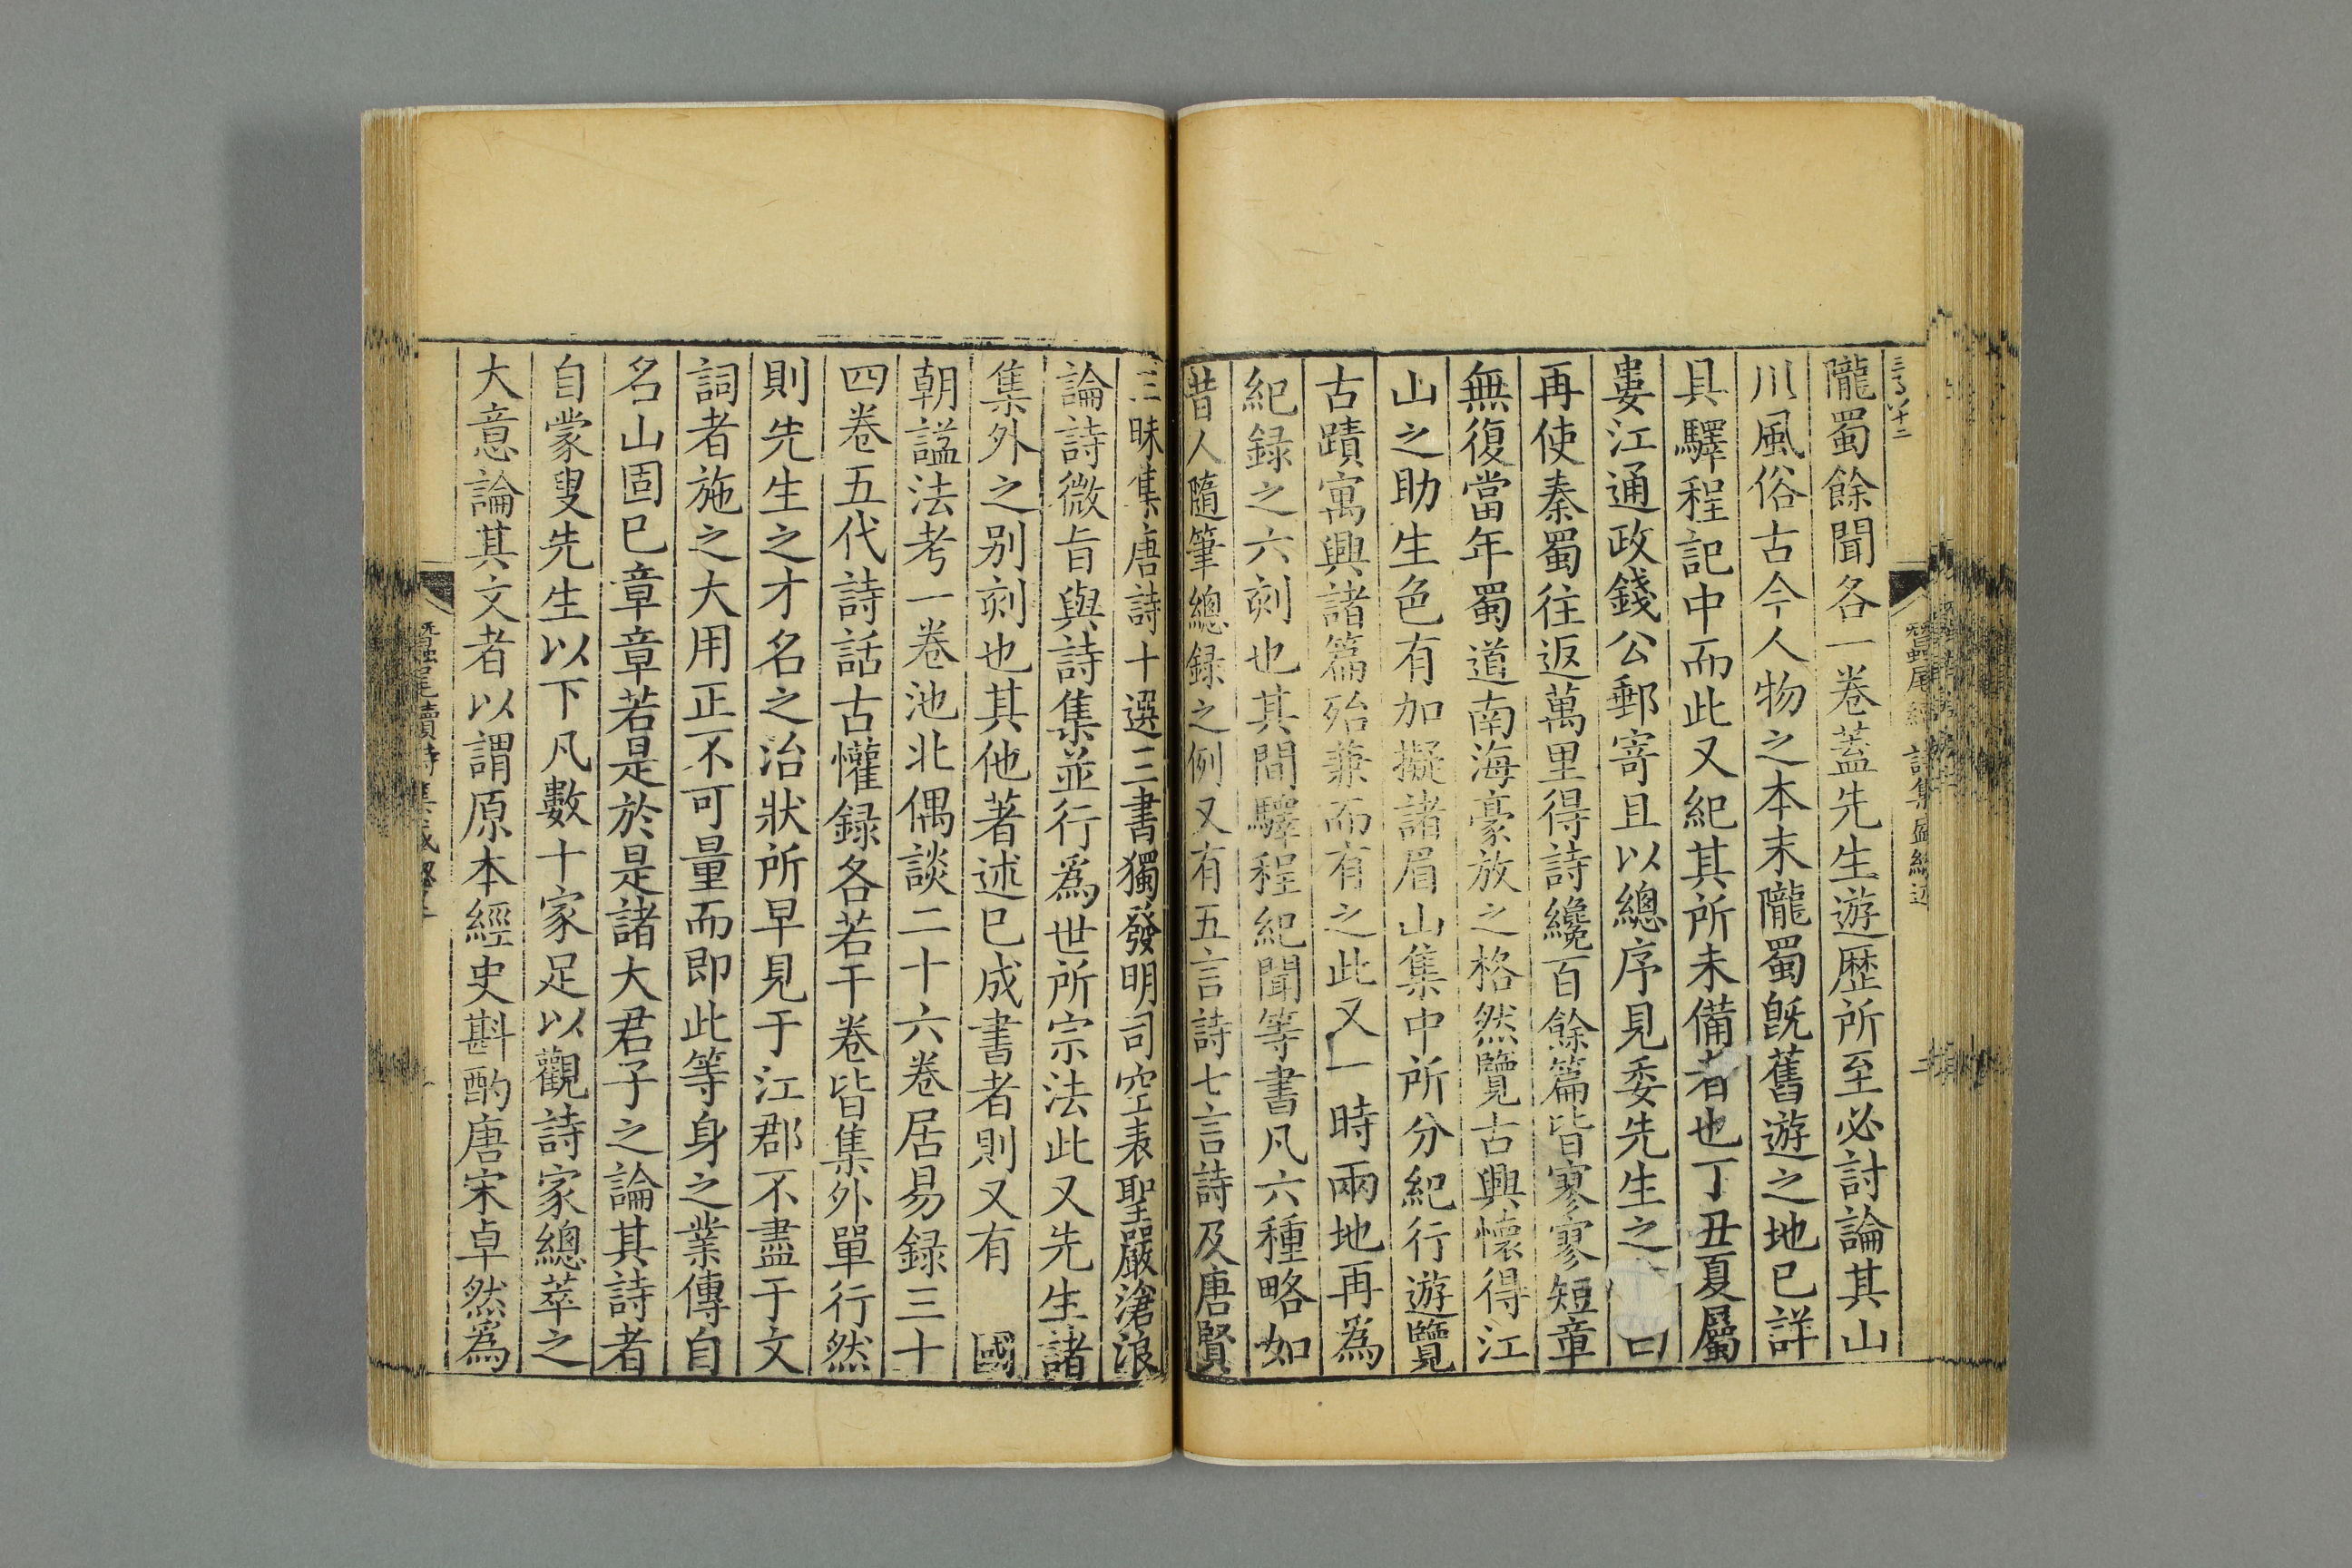 隴蜀餘聞各一卷蓋先生遊歷所至必討論其山
川風俗古今人物之本末隴蜀旣舊遊之地已詳
具驛程記中而此又紀其所未備者也丁丑夏屬
婁江通政錢公郵寄且以總序見委先生之曰
再使秦蜀往返萬里得詩纔百餘篇皆寥寥短章
無復當年蜀道南海豪放之格然覽古興懷得江
山之助生色有加擬諸眉山集中所分紀行遊覽
古蹟寓興諸篇殆兼而有之此又一時兩地再爲
紀録之六刻也其間驛程紀聞等書凡六種略如
昔人隨筆總録之例又有五言詩七言詩及唐賢
三昧集唐詩十選三書獨發明司空表聖嚴滄浪
論詩微旨與詩集並行爲世所宗法此又先生諸
集外之别刻也其他著述已成書者則又有 國
朝謚法考一卷池北偶談二十六卷居易録三十
四卷五代詩話古懽録各若干卷皆集外單行然
則先生之才名之治狀所早見于江郡不盡于文
詞者施之大用正不可量而即此等身之業傳自
名山固已章章若是於是諸大君子之論其詩者
自蒙叟先生以下凡數十家足以觀詩家總萃之
大意論其文者以謂原本經史斟酌唐宋卓然爲
蠶尾續詩集